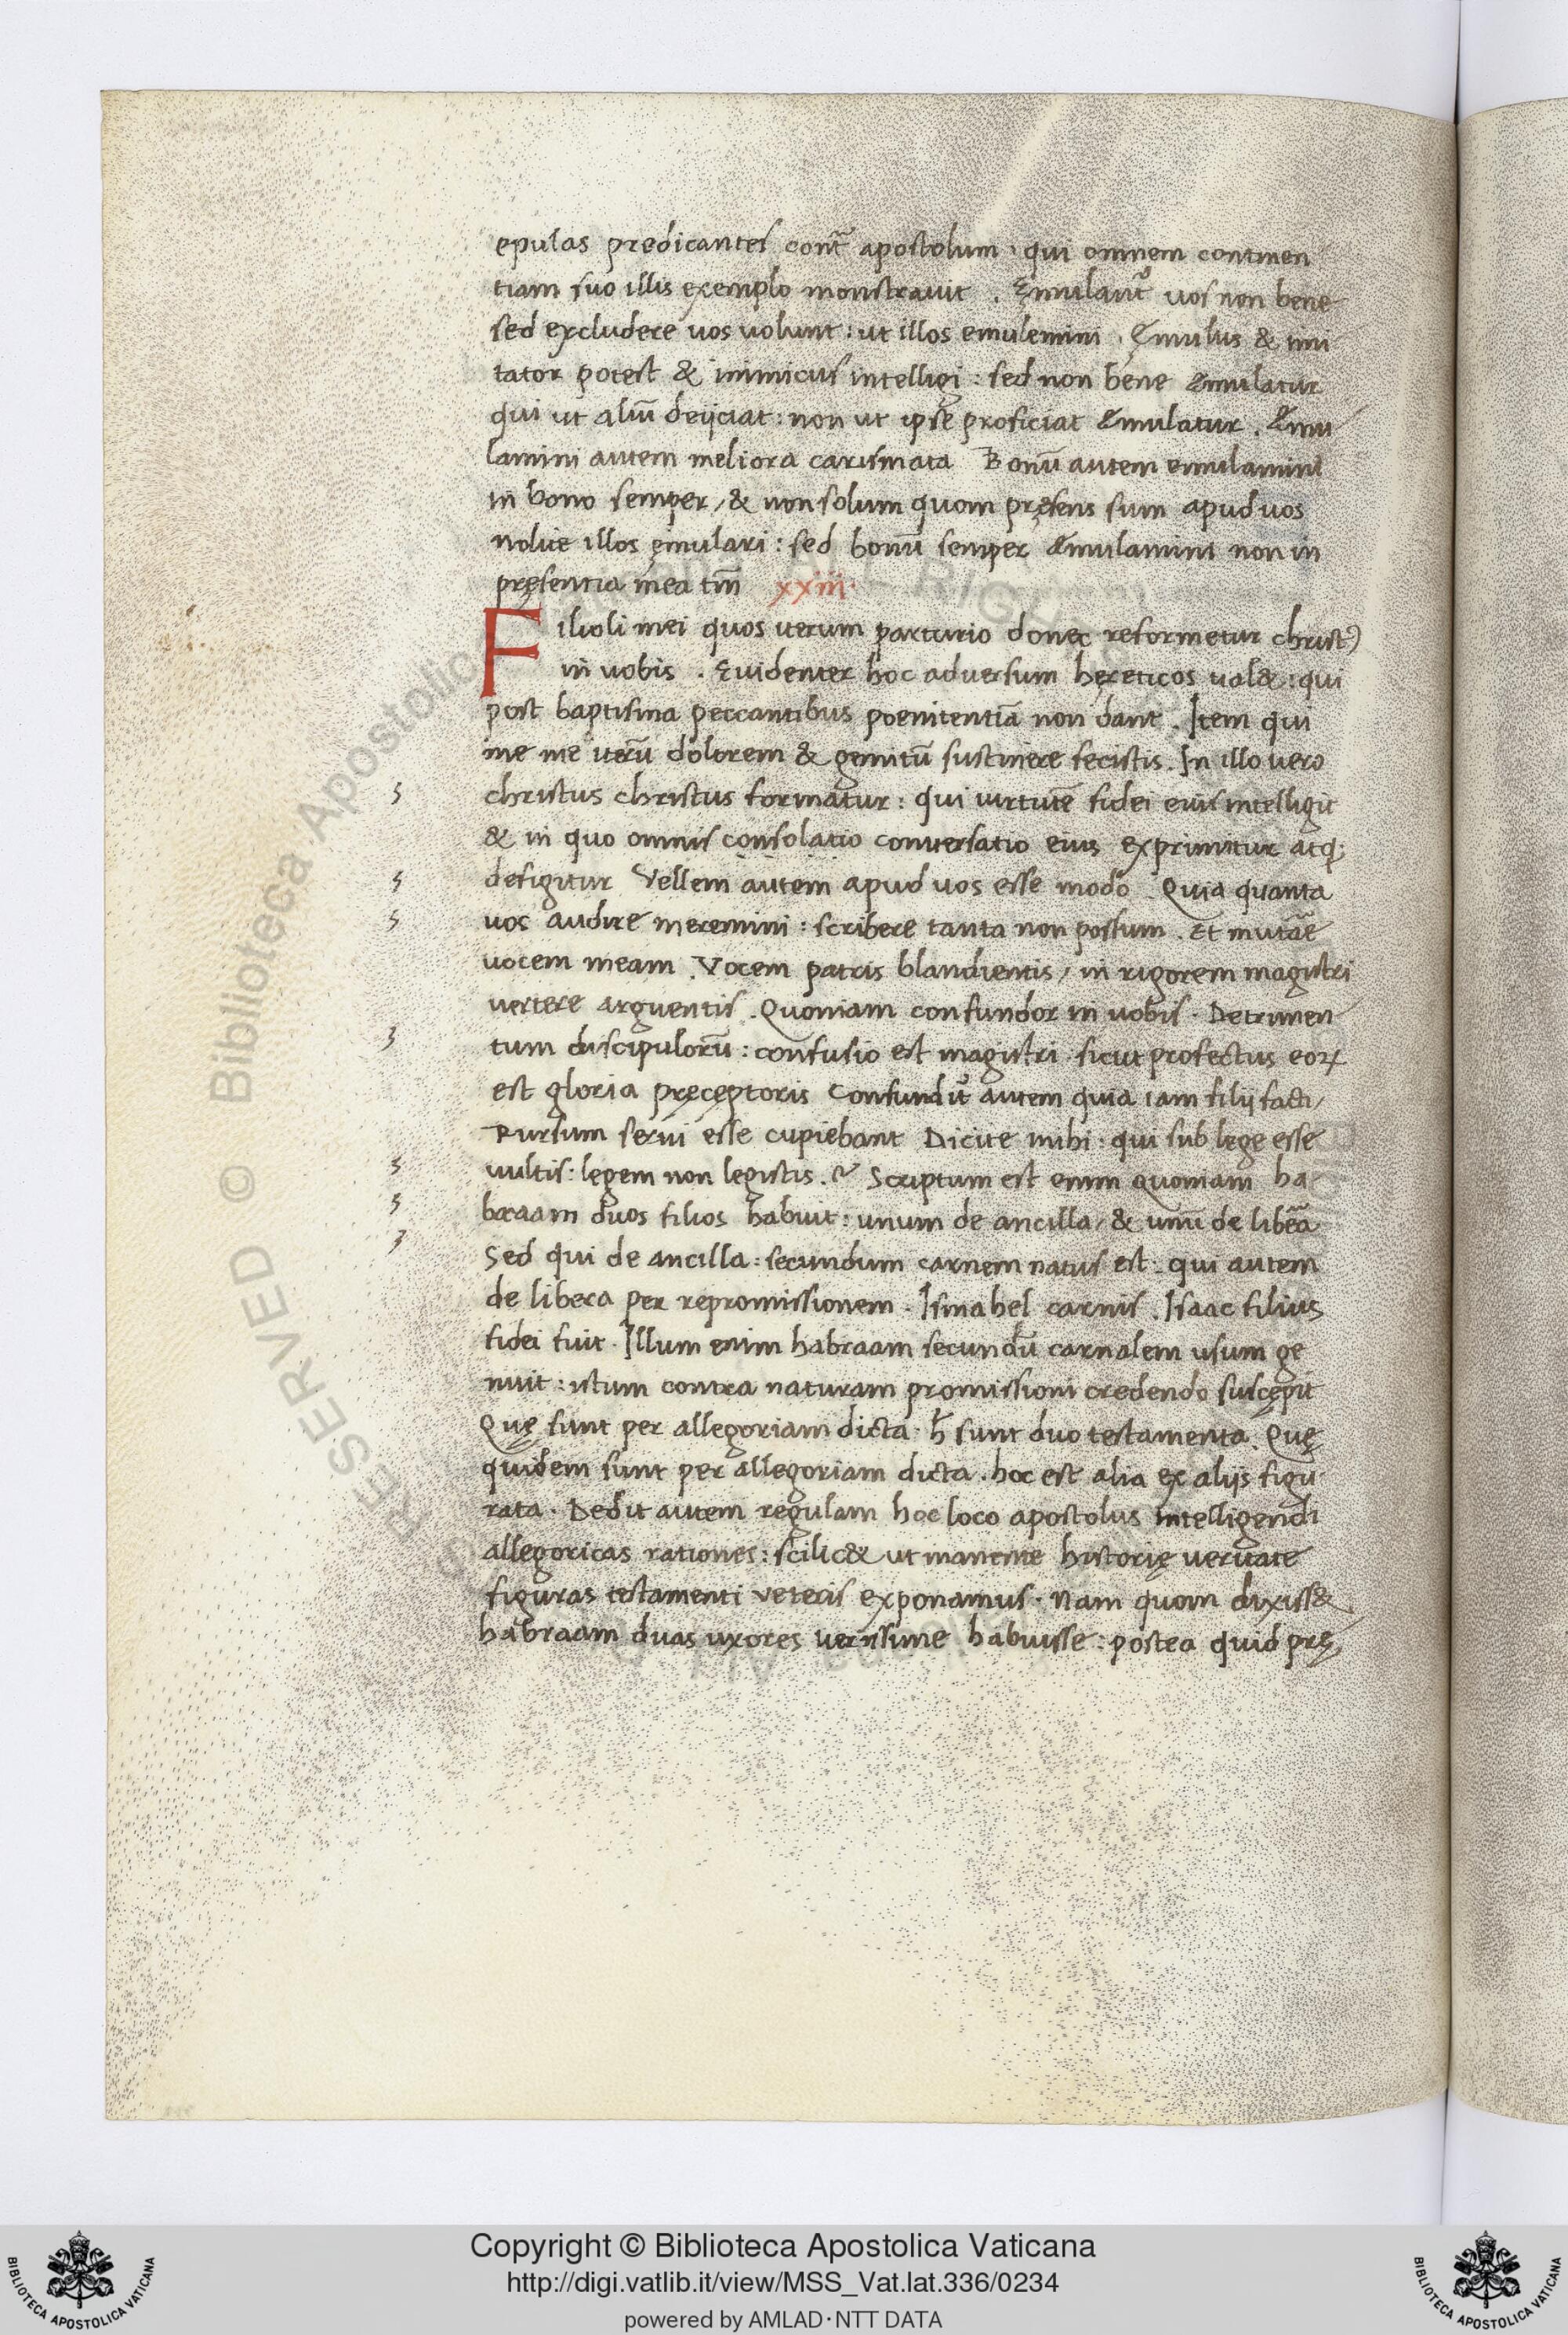 epulas predicantes cont̄ apostolum · qui omnem continen
tiam suo illis exemplo monstravit . Ęmulant᷑ vos non bene
sed excludere vos volunt : ut illos emulemini . Ęmulus & imi
tator potest & inimicus intelligi : sed non bene Æmulatur
qui ut aliū deijciat : non ut ipse proficiat Æmulatur . Æmu
lamini autem meliora carismata Bonū autem emulamini
in bono semper / & non solum quom pręsens sum apud vos
nolite illos ęmulari : sed bonū semper Æmulamini non in
pręsentia mea tm̄ xxiii·
Filioli mei quos iterum parturio donec reformetur christꝰ
in vobis . Evidenter hoc adversum hęreticos val& : qui
post baptisma peccantibus poenitentiā non dant . Item qui
me me iterū dolorem & gemitū sustinere fecistis . In illo vero
christus christus formatur : qui virtutē fidei eius intelligit
& in quo omnis consolatio conversatio eius exprimitur atq;
defigitur Vellem autem apud vos esse modo . Quia quanta
vos audire meremini : scribere tanta non possum . Et mutāe
vocem meam . Vocem patris blandientis / in rigorem magistri
vertere arguentis . Quoniam confundor in vobis . Detrimen
tum discipulorū : confusio est magistri sicut profectus eoꝝ
est gloria pręcęptoris Confundit᷑ autem quia iam filij facti /
Rursum servi esse cupiebant Dicite mihi : qui sub lege esse
vultis : legem non legistis . ? Scriptum est enim quoniam ha
braam duos filios habuit : unum de ancilla / & unū de libēa
Sed qui de ancilla : secundum carnem natus est . qui autem
de libera per repromissionem . Ismahel carnis . Isaac filius
fidei fuit . Illum enim habraam secundū carnalem usum ge
nuit : istum contra naturam promissioni credendo suscępit
Quę sunt per allegoriam dicta . h̄ sunt duo testamenta . Quę
quidem sunt per allegoriam dicta . hoc est alia ex alijs figu
rata . Dedit autem regulam hoc loco apostolus intelligendi
allegoricas rationes : scilic& ut manente historię veritate
figuras testamenti veteris exponamus . Nam quom dixiss&
habraam duas uxores verissime habuisse : postea quid prę
RESERVED © Biblioteca Apostolica
Copyright © Biblioteca Apostolica Vaticana
http://digi.vatlib.it/view/MSS_Vat.lat.336/0234
powered by AMLAD·NTT DATA
BIBLIOTECA APOSTOLICA VATICANA
BIBLIOTECA APOSTOLICA VATICANA